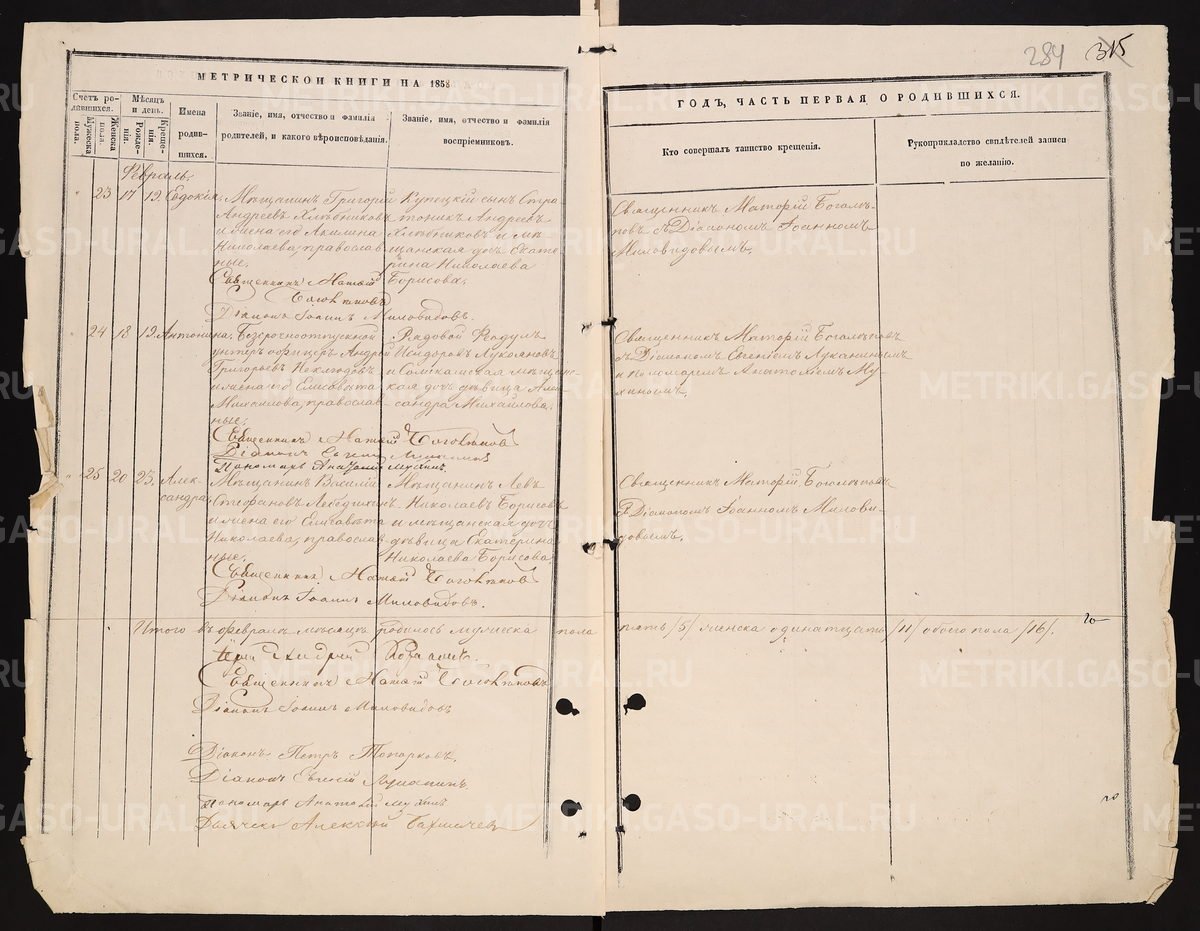 284 315
МЕТРИЧЕСКОЙ КНИГИ НА 1858
Счетъ родившихся.
Мужеска пола.
Женска пола.
Мѣсяцъ и день.
Рожденія.
Крещенія.
Имена родившихся.
Званіе, имя, отчество и фамилія родителей, и какого вѣроисповѣданія.
Званіе, имя, отчество и фамилія воспріемниковъ.
ГОДЪ, ЧАСТЬ ПЕРВАЯ О РОДИВШИХСЯ.
Кто совершалъ таинство крещенія.
Рукоприкладство свидѣтелей записи по желанію.
Февраль.
23 17 19. Евдокія,
Мѣщанинъ Григорій
Андреевъ Хлѣбниковъ
и жена его Акилина
Николаева, православ
ные.
Купецкій сынъ Стра
тоникъ Андреевъ
Хлѣбниковъ и мѣ
щанская дочь Екате
рина Николаева
Борисова.
Священникъ Маторій Боголѣ-
повъ съ Діакономъ Іоанномъ
Миловидовымъ.
Священникъ
Боголѣповъ
Діаконъ Іоаннъ Миловидовъ.
24 18 19. Антонина,
Безсрочноотпускной
унтеръ офицеръ Андрей
Григорьевъ
и жена его Елисавета
Михаилова, православ-
ные.
Рядовой
Исидоровъ Лукояновъ
и Соликамская мѣщан-
кая дочь дѣвица Алек
сандра Михайлова.
Священникъ Маторій Боголѣповъ
съ Діакономъ Евгеніемъ Луканинымъ
и пономаремъ Анатоліемъ Му-
хинымъ.
Священникъ Боголѣповъ
Діаконъ Евгеній Луканинъ
Пономарь Анатолій Мухинъ.
25 20 23. Алек-
сандра,
Мѣщанинъ Василій
Стефановъ Лебедкинъ
и жена его Елисавета
Николаева, православ
ные.
Мѣщанинъ Левъ
Николаевъ Борисовъ
и мѣщанская дочь
дѣвица Екатерина
Николаева Борисова.
Священникъ Маторій Боголѣповъ
съ Діакономъ Іоанномъ Милови-
довымъ.
Священникъ Боголѣповъ
Діаконъ Іоаннъ Миловидовъ.
Итого въ февралѣ мѣсяцѣ родилось мужеска пола пять /5/ женска одинатцать /11/ обоего пола /16/.
Священникъ Боголѣповъ
Діаконъ Іоаннъ Миловидовъ
Діаконъ Петръ Топорковъ.
Діаконъ Евгеній Луканинъ
Пономарь Анатолій Мухинъ
Алексій
METRIKI.GASO-URAL.RU